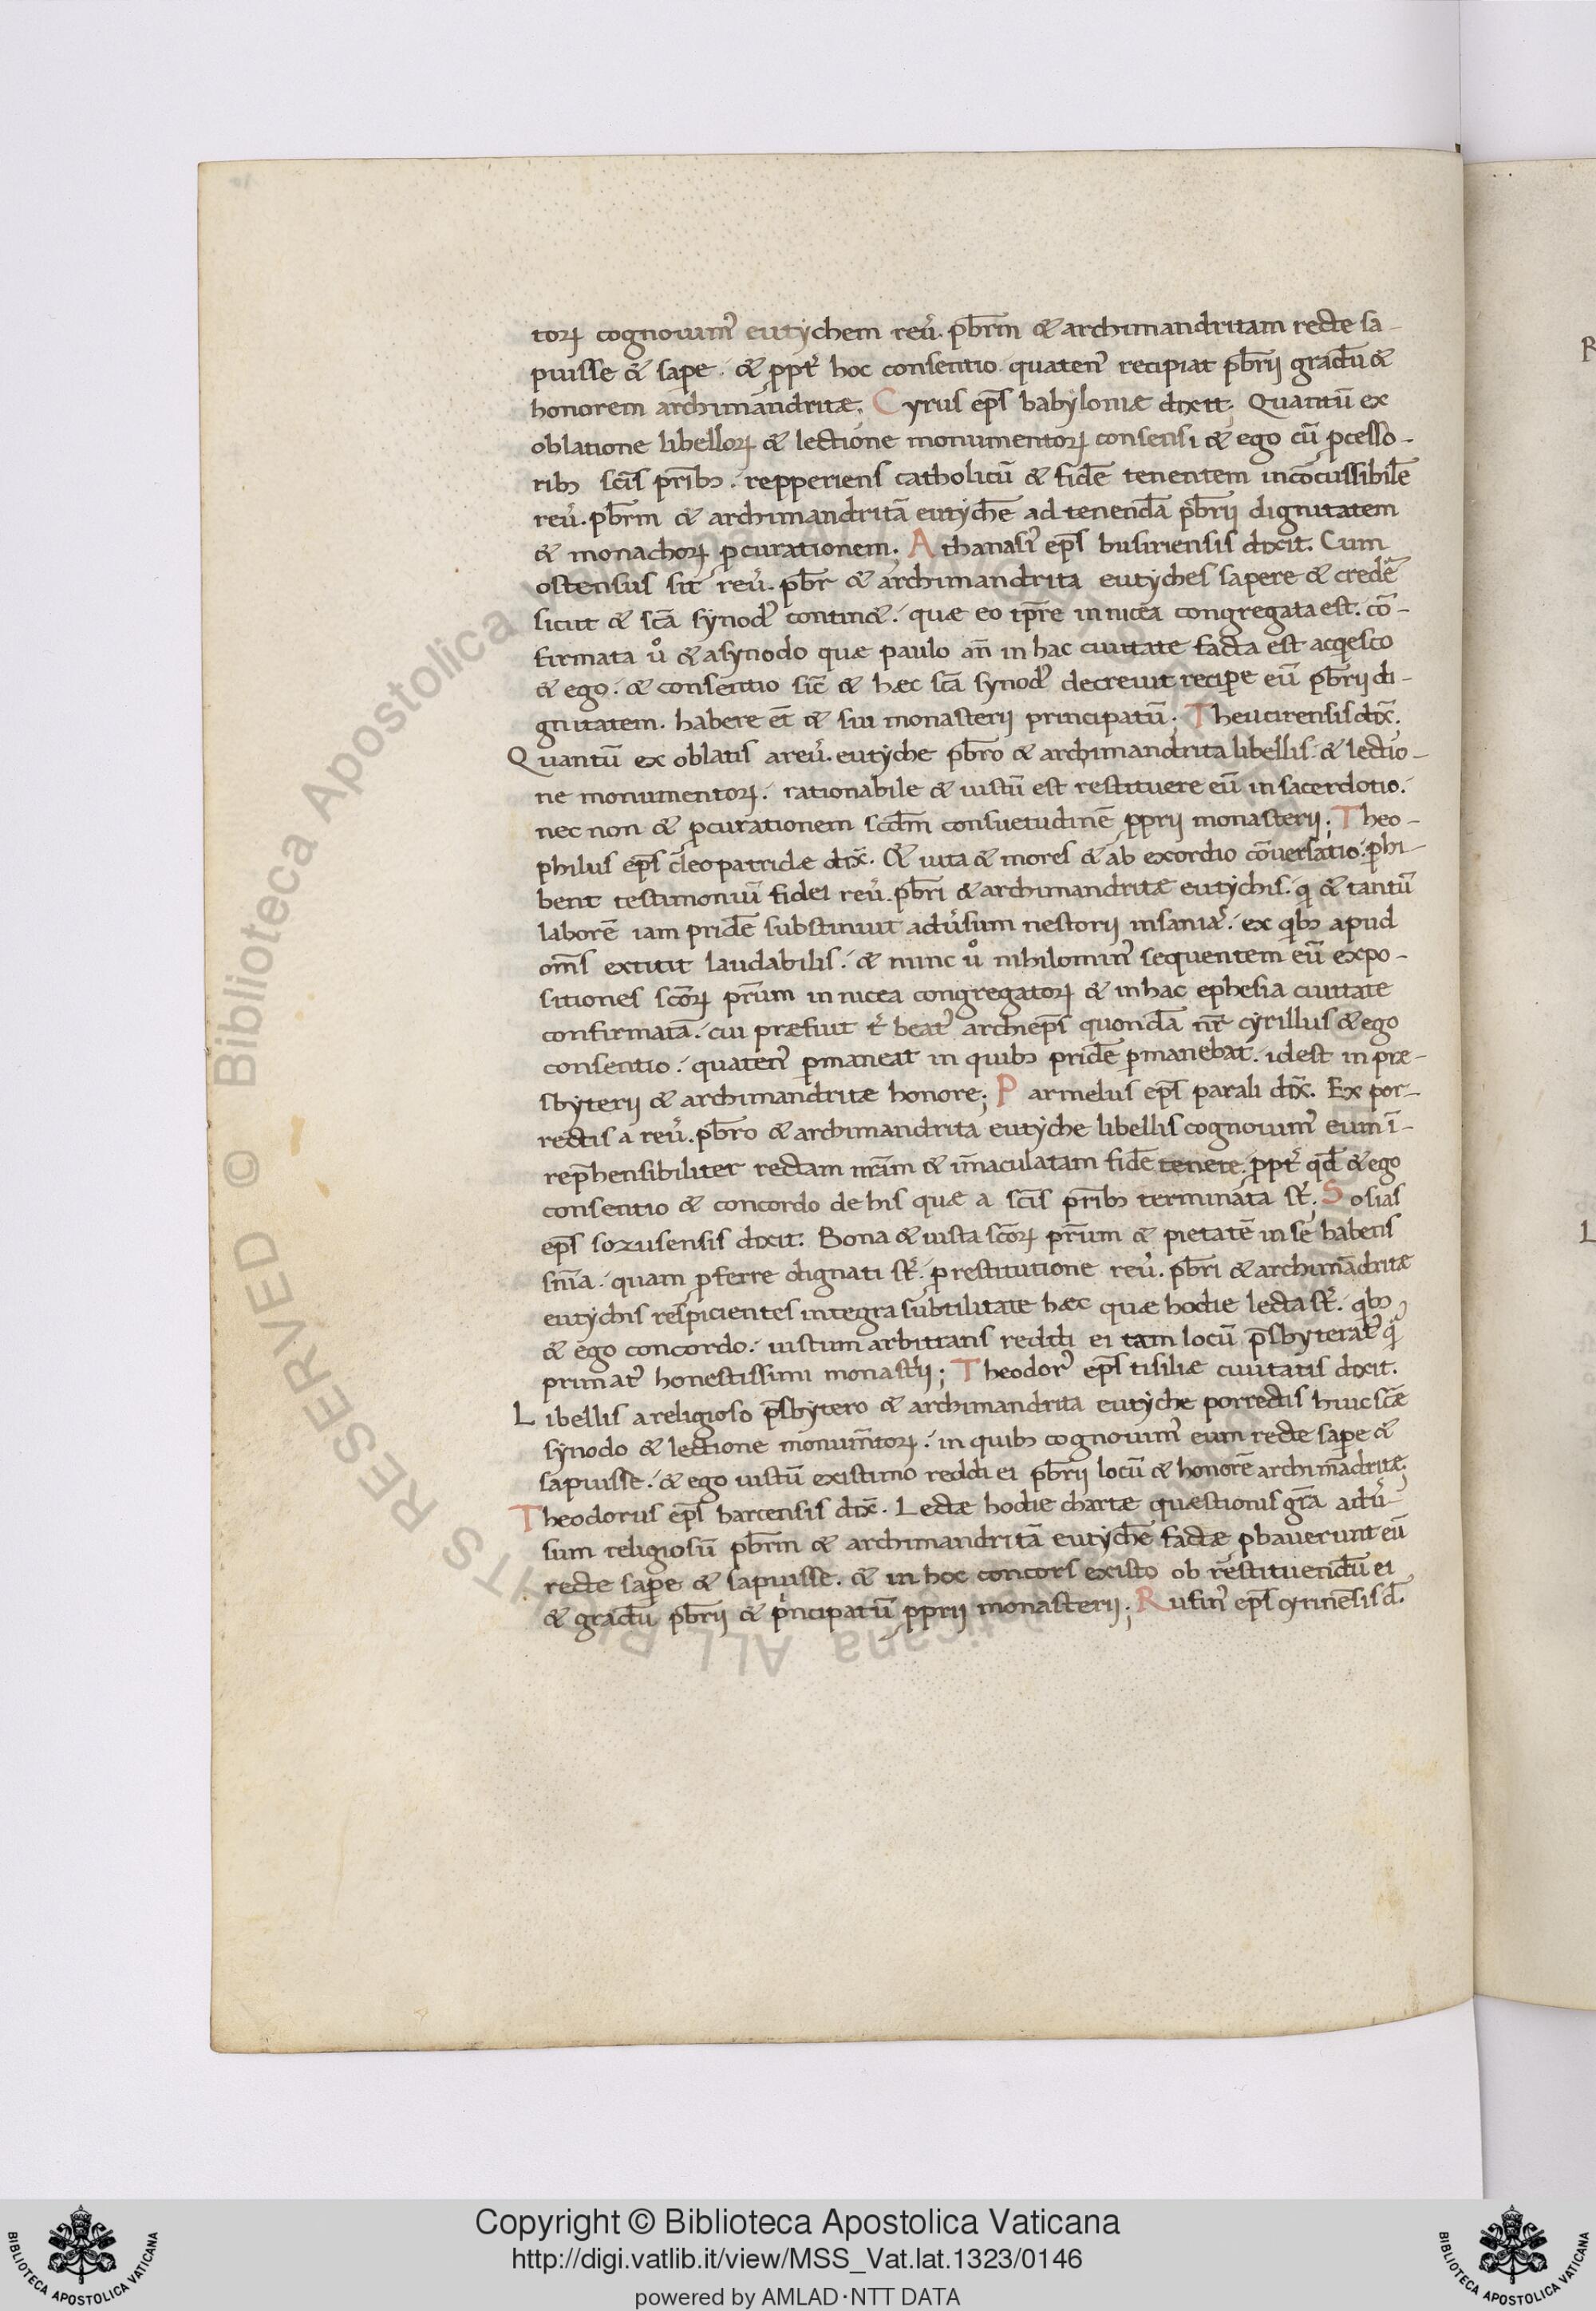 toꝝ cognouim᷒ eutychem reu᷒. pb̅rm & archimandritam recte sa-
puisse & sape. & ꝓpt᷒ hoc consentio quaten᷒ recipiat pb̅rii gradu̅ &
honorem archimandritæ. Cyrus ep̅s babyloniæ dixit. Quantu̅ ex
oblatione libelloꝝ & lectione monumentoꝝ consensi & ego cu̅ p̅cesso-
rib; sc̅is pr̅ib;. repperiens catholicu̅ & fide̅ tenentem inco̅cussibile̅
reu᷒. pb̅rm & archimandrita̅ eutyche̅ ad tenenda̅ pb̅rii dignitatem
& monachoꝝ ꝓcurationem. Athanasi᷒ ep̅s busiriensis dixit. Cum
ostensus sit reu᷒. pb̅r & archimandrita eutyches sapere & crede̅
sicut & sc̅a synod᷒ contin&. quæ eo tp̅re in nicea congregata est. co̅-
firmata uº & a synodo quæ paulo an̅ in hac ciuitate facta est acq̇esco
& ego. & consentio sic̅ & hæc sc̅a synod᷒ decreuit recipe eu̅ pb̅rii di-
gnitatem. habere et̅ & sui monasterii principatu̅. Theucirensis dix̅.
Quantu̅ ex oblatis a reu᷒. eutyche pb̅ro & archimandrita libellis & lectio-
ne monumentoꝝ. rationabile & iustu̅ est restituere eu̅ in sacerdotio.
nec non & ꝓcurationem scd̅m consuetudine̅ ꝓprii monasterii; Theo-
philus ep̅s cleopatridæ dix̅. & uita & mores & ab exordio co̅uersatio. phi-
bent testimoniu̅ fidei reu᷒. pb̅ri & archimandritæ eutychis. q & tantu̅
labore̅ iam pride̅ substinuit adu᷒sum nestorii insania᷒. ex qib; apud
om̅s extitit laudabilis. & nunc uº nihilomin᷒ sequentem eu̅ expo-
sitiones sc̅oꝝ pr̅um in nicea congregatoꝝ & in hac ephesia ciuitate
confirmata̅. cui præfuit t᷒ beat᷒ archiep̅s quonda̅ nr̅ cyrillus & ego
consentio. quaten᷒ ꝑmaneat in quib; pride̅ ꝑmanebat. idest in præ-
sbyterii & archimandritæ honore; Parmelus ep̅s parali dix̅. Ex por-
rectis a reu᷒. pb̅ro & archimandrita eutyche libellis cognouim᷒ eum i̅-
rep̅hensibiliter rectam nr̅am & i̅maculatam fide̅ tenere. ꝓpt᷒ qd̅ & ego
consentio & concordo de his quæ a sc̅is pr̅ib; terminata st᷒; Sosias
ep̅s sozusensis dixit. Bona & iusta sc̅oꝝ pr̅um & pietate̅ in se habens
sn̅ia. quam ꝓferre dignati st᷒. ꝓ restitutione reu᷒. pb̅ri & archima̅dritæ
eutychis respicientes integra subtilitate hæc quæ hodie lecta st᷒. qib;
& ego concordo. iustum arbitrans reddi ei tam locu̅ p̅sbyterat᷒ q̇
primat᷒ honestissimi monast᷒ii; Theodor᷒ ep̅s tisiliæ ciuitatis dixit.
Libellis a religioso p̅sbytero & archimandrita eutyche porrectis huic sc̅æ
synodo & lectione monum̅toꝝ. in quib; cognouim᷒ eum recte sape &
sapuisse. & ego iustu̅ existimo reddi ei pb̅rii locu̅ & honore̅ archima̅dritæ;
Theodorus ep̅s barcensis dix̅. Lectæ hodie chartæ quæstionis gr̅a adu᷒-
sum religiosu̅ pb̅rm & archimandrita̅ eutyche̅ factæ ꝓbauerunt eu̅
recte sape & sapuisse. & in hoc concors existo ob restituendu̅ ei
& gradu̅ pb̅rii & pͥncipatu̅ ꝓprii monasterii; Rufin᷒ ep̅s cyrine̅sis d̅.
Copyright © Biblioteca Apostolica Vaticana
http://digi.vatlib.it/view/MSS_Vat.lat.1323/0146
powered by AMLAD·NTT DATA
BIBLIOTECA APOSTOLICA VATICANA
BIBLIOTECA APOSTOLICA VATICANA